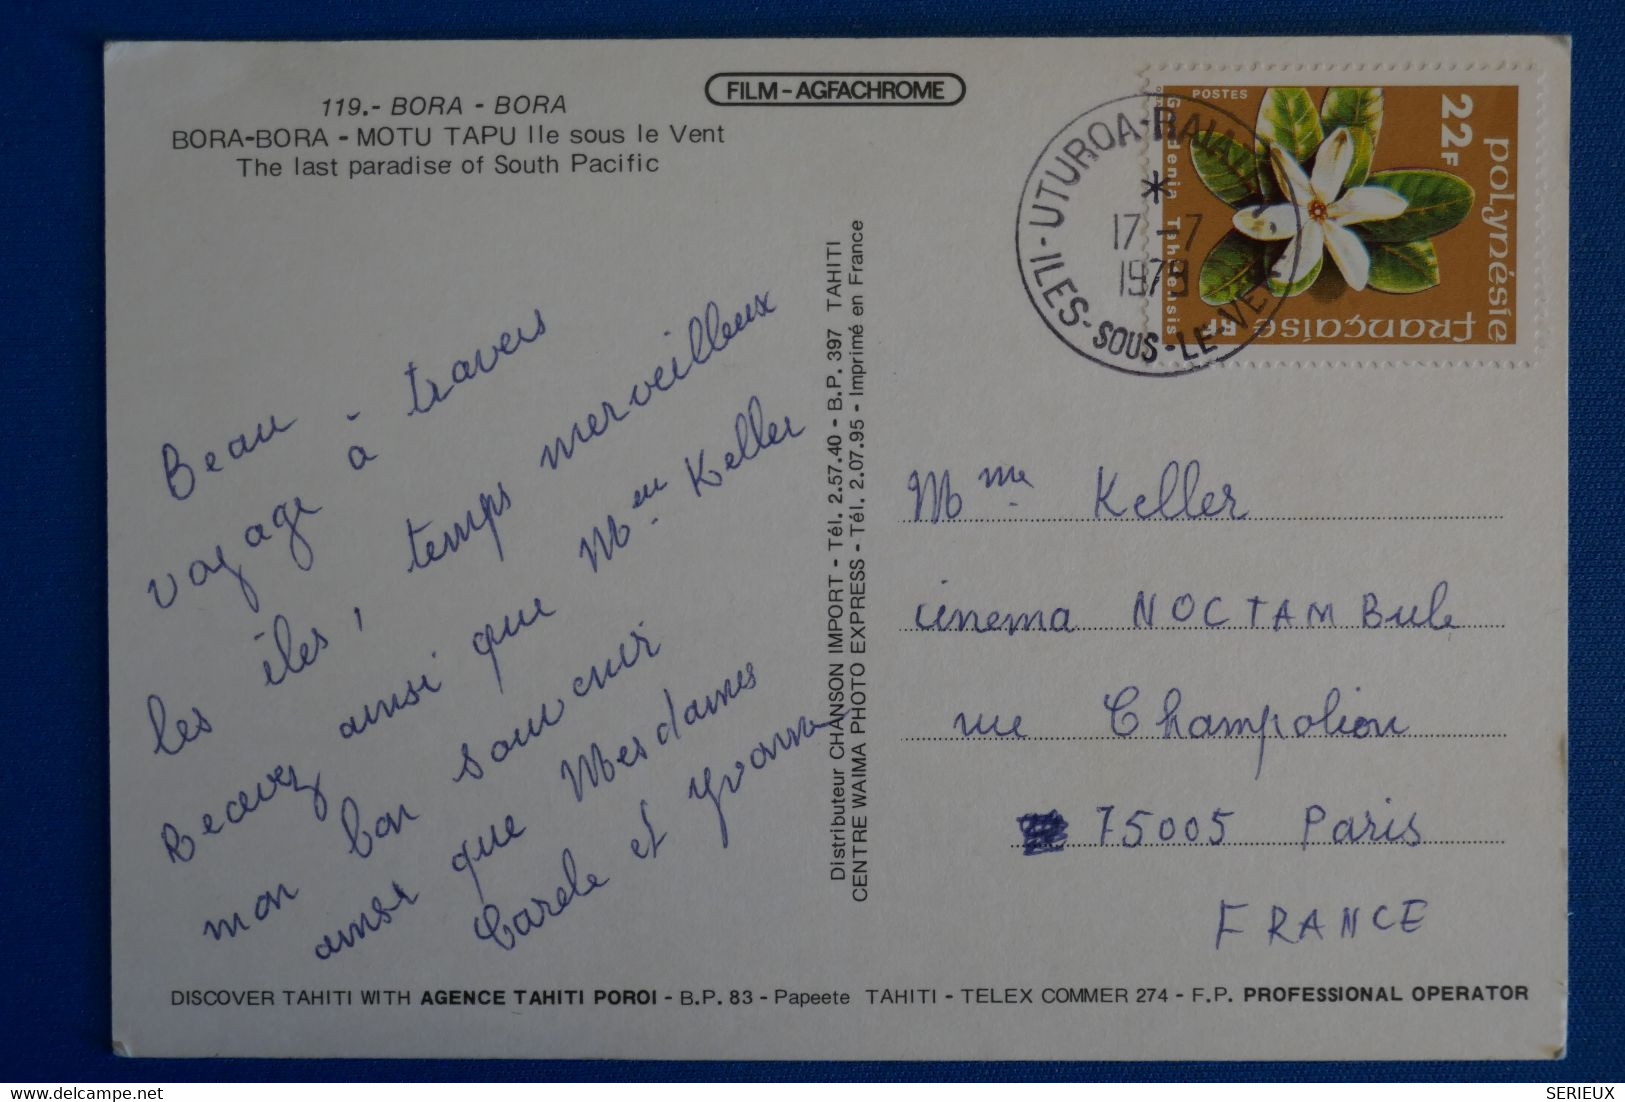 FILM - AGFACHROME
119.- BORA - BORA
BORA-BORA - MOTU TAPU Ile sous le Vent
The last paradise of South Pacific
POSTES
22F
polynésie
française RF
Gardenia Tahitensis
UTUROA-RAIATEA
*
17-7
1979
ILES-SOUS-LE-VENT
Beau
voyage à travers
les îles, temps merveilleux
Recevez ainsi que Mme Keller
mon bon souvenir
ainsi que Mesdames
Carole et Yvonne
Distributeur CHANSON IMPORT - Tél. 2.57.40 - B.P. 397 TAHITI
CENTRE WAIMA PHOTO EXPRESS - Tél. 2.07.95 - Imprimé en France
Mme Keller
cinema NOCTAMBule
rue Champolion
75005 Paris
FRANCE
DISCOVER TAHITI WITH AGENCE TAHITI POROI - B.P. 83 - Papeete TAHITI - TELEX COMMER 274 - F.P. PROFESSIONAL OPERATOR
SERIEUX